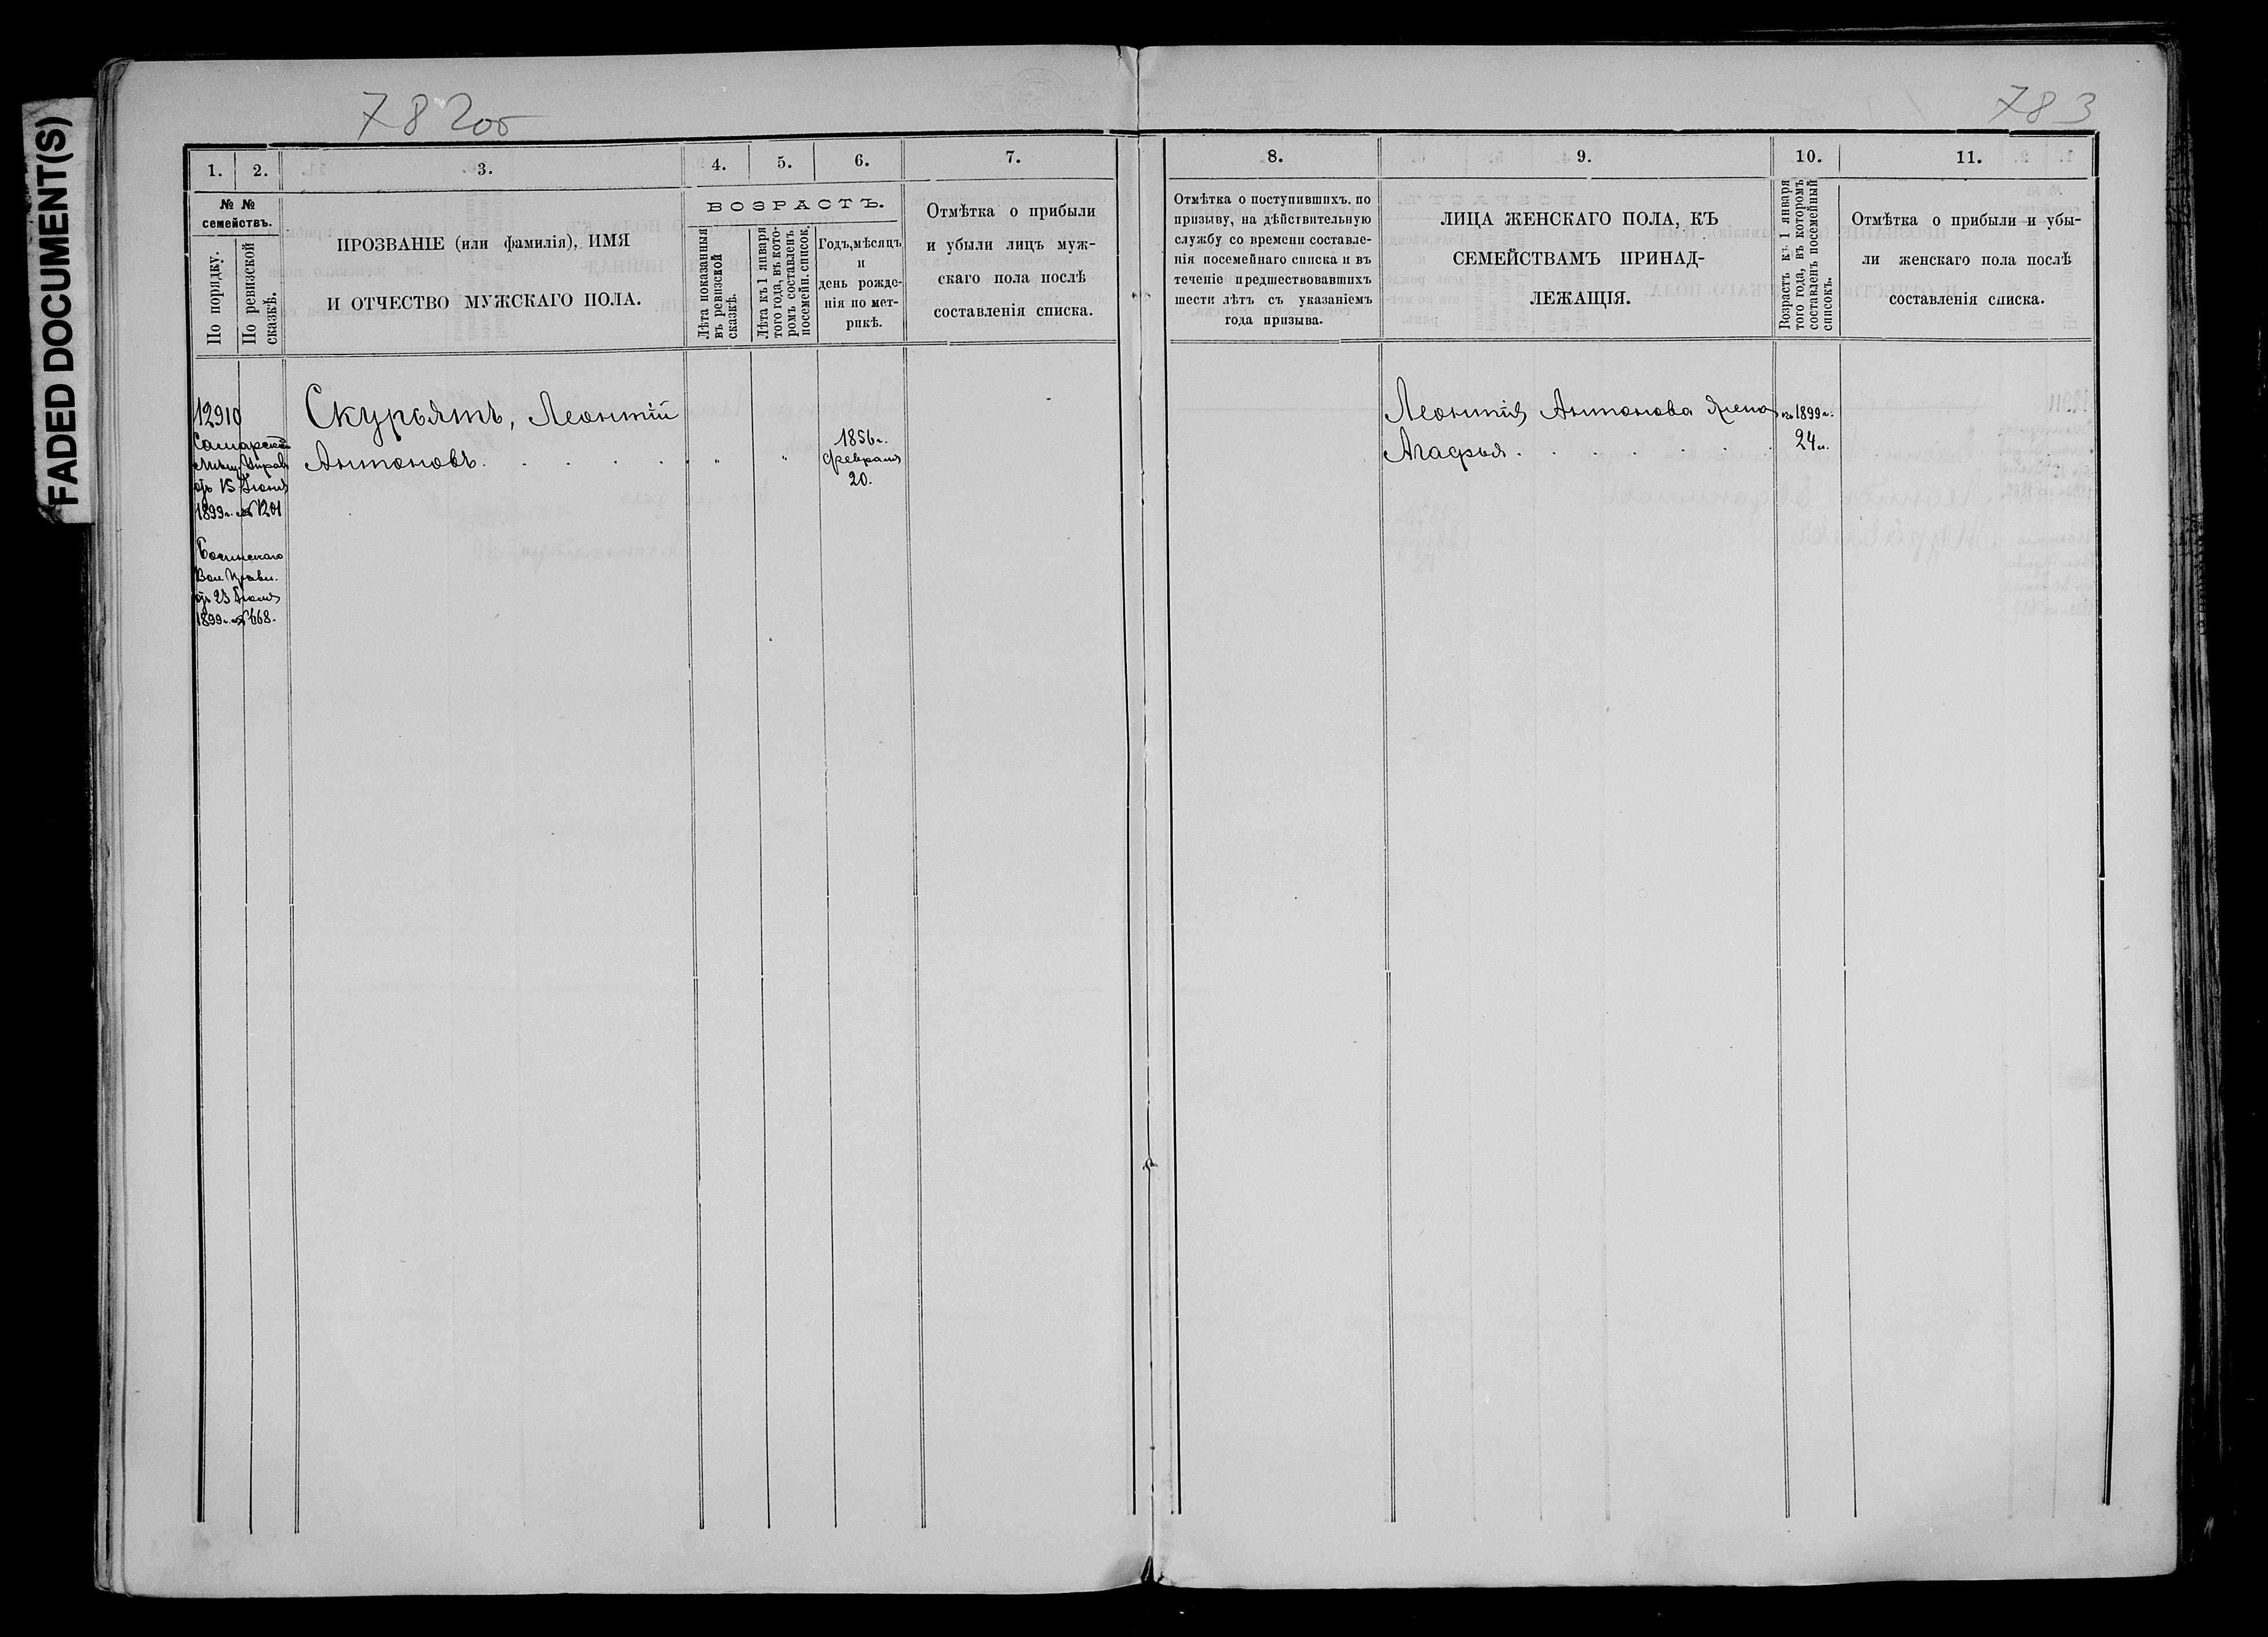 FADED DOCUMENT(S)
782об
783
1.
2.
3.
4.
5.
6.
7.
№ №
семействъ.
По порядку.
По ревизской
сказкѣ.
ПРОЗВАНІЕ (или фамилія), ИМЯ
И ОТЧЕСТВО МУЖСКАГО ПОЛА.
ВОЗРАСТЪ.
Лѣта показанныя
въ ревизской
сказкѣ.
Лѣта къ 1 января
того года, въ кото-
ромъ составленъ
посемейн. список.
Годъ, мѣсяцъ
и
день рожде-
нія по мет-
рикѣ.
Отмѣтка о прибыли
и убыли лицъ муж-
скаго пола послѣ
составленія списка.
12910
Самарской
Мѣщ. Управ.
отъ 15 Іюня
1899 г. № 1201
Вол. Правл.
1899 г. № 668.
Скурьятъ, Леонтій
Антоновъ. . . . .
1856 г.
февраля
20.
8.
9.
10.
11.
Отмѣтка о поступившихъ. по
призыву, на дѣйствительную
службу со времени составле-
нія посемейнаго списка и въ
теченіе предшествовавшихъ
шести лѣтъ съ указаніемъ
года призыва.
ЛИЦА ЖЕНСКАГО ПОЛА, КЪ
СЕМЕЙСТВАМЪ ПРИНАД-
ЛЕЖАЩІЯ.
Возрастъ къ 1 января
того года, въ которомъ
составленъ посемейный
списокъ.
Отмѣтка о прибыли и убы-
ли женскаго пола послѣ
составленія списка.
Леонтія Антонова жена
Агафья . . . . . . .
къ 1899 г.
24 л.